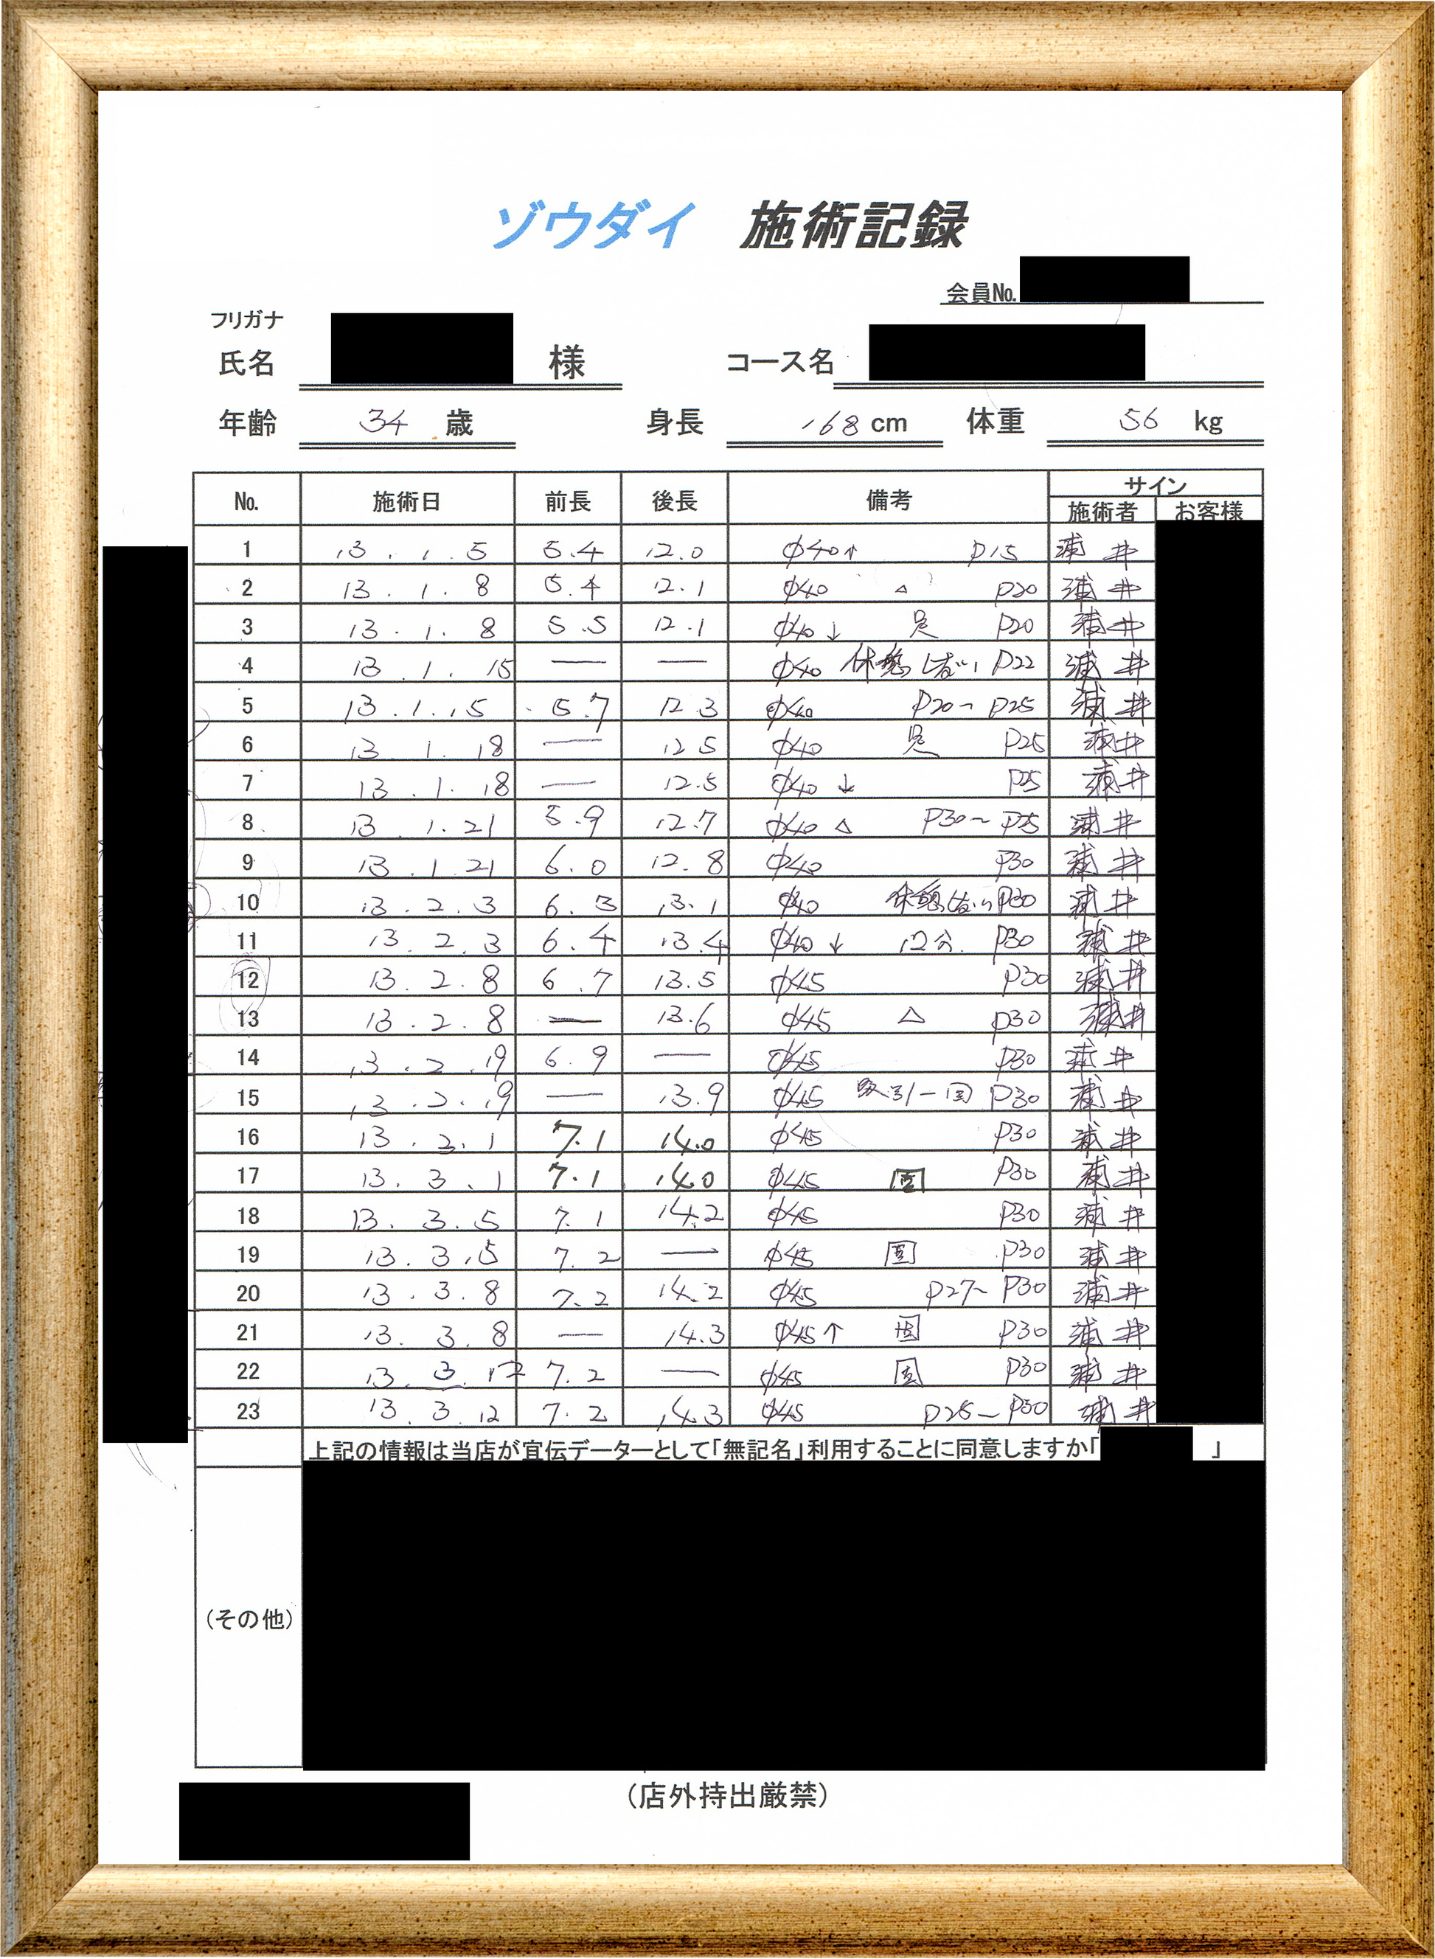 ゾウダイ 施術記録
会員No.
フリガナ
氏名 様 コース名
年齢 34 歳 身長 168 cm 体重 56 kg
No. 施術日 前長 後長 備考 サイン
施術者 お客様
1 13.1.5 5.4 12.0 φ40↑ P15 浦井
2 13.1.8 5.4 12.1 φ40 △ P20 浦井
3 13.1.8 5.5 12.1 φ40↓ P20 浦井
4 13.1.15 — — φ40 休憩しない P22 浦井
5 13.1.15 5.7 12.3 φ40 P20~P25 浦井
6 13.1.18 — 12.5 φ40 P25 浦井
7 13.1.18 — 12.5 φ40↓ P25 浦井
8 13.1.21 5.9 12.7 φ40 △ P30~P25 浦井
9 13.1.21 6.0 12.8 φ40 P30 浦井
10 13.2.3 6.3 13.1 φ40 休憩しない P30 浦井
11 13.2.3 6.4 13.4 φ40↓ 12分 P30 浦井
12 13.2.8 6.7 13.5 φ45 P30 浦井
13 13.2.8 — 13.6 φ45 △ P30 浦井
14 13.2.19 6.9 — φ45 P30 浦井
15 13.2.19 — 13.9 φ45 吸引一回 P30 浦井
16 13.2.1 7.1 14.0 φ45 P30 浦井
17 13.3.1 7.1 14.0 φ45 P30 浦井
18 13.3.5 7.1 14.2 φ45 P30 浦井
19 13.3.5 7.2 — φ45 P30 浦井
20 13.3.8 7.2 14.2 φ45 P27~P30 浦井
21 13.3.8 — 14.3 φ45↑ P30 浦井
22 13.3.12 7.2 — φ45 P30 浦井
23 13.3.12 7.2 14.3 φ45 P25~P30 浦井
上記の情報は当店が宣伝データーとして「無記名」利用することに同意しますか「 」
(その他)
(店外持出厳禁)